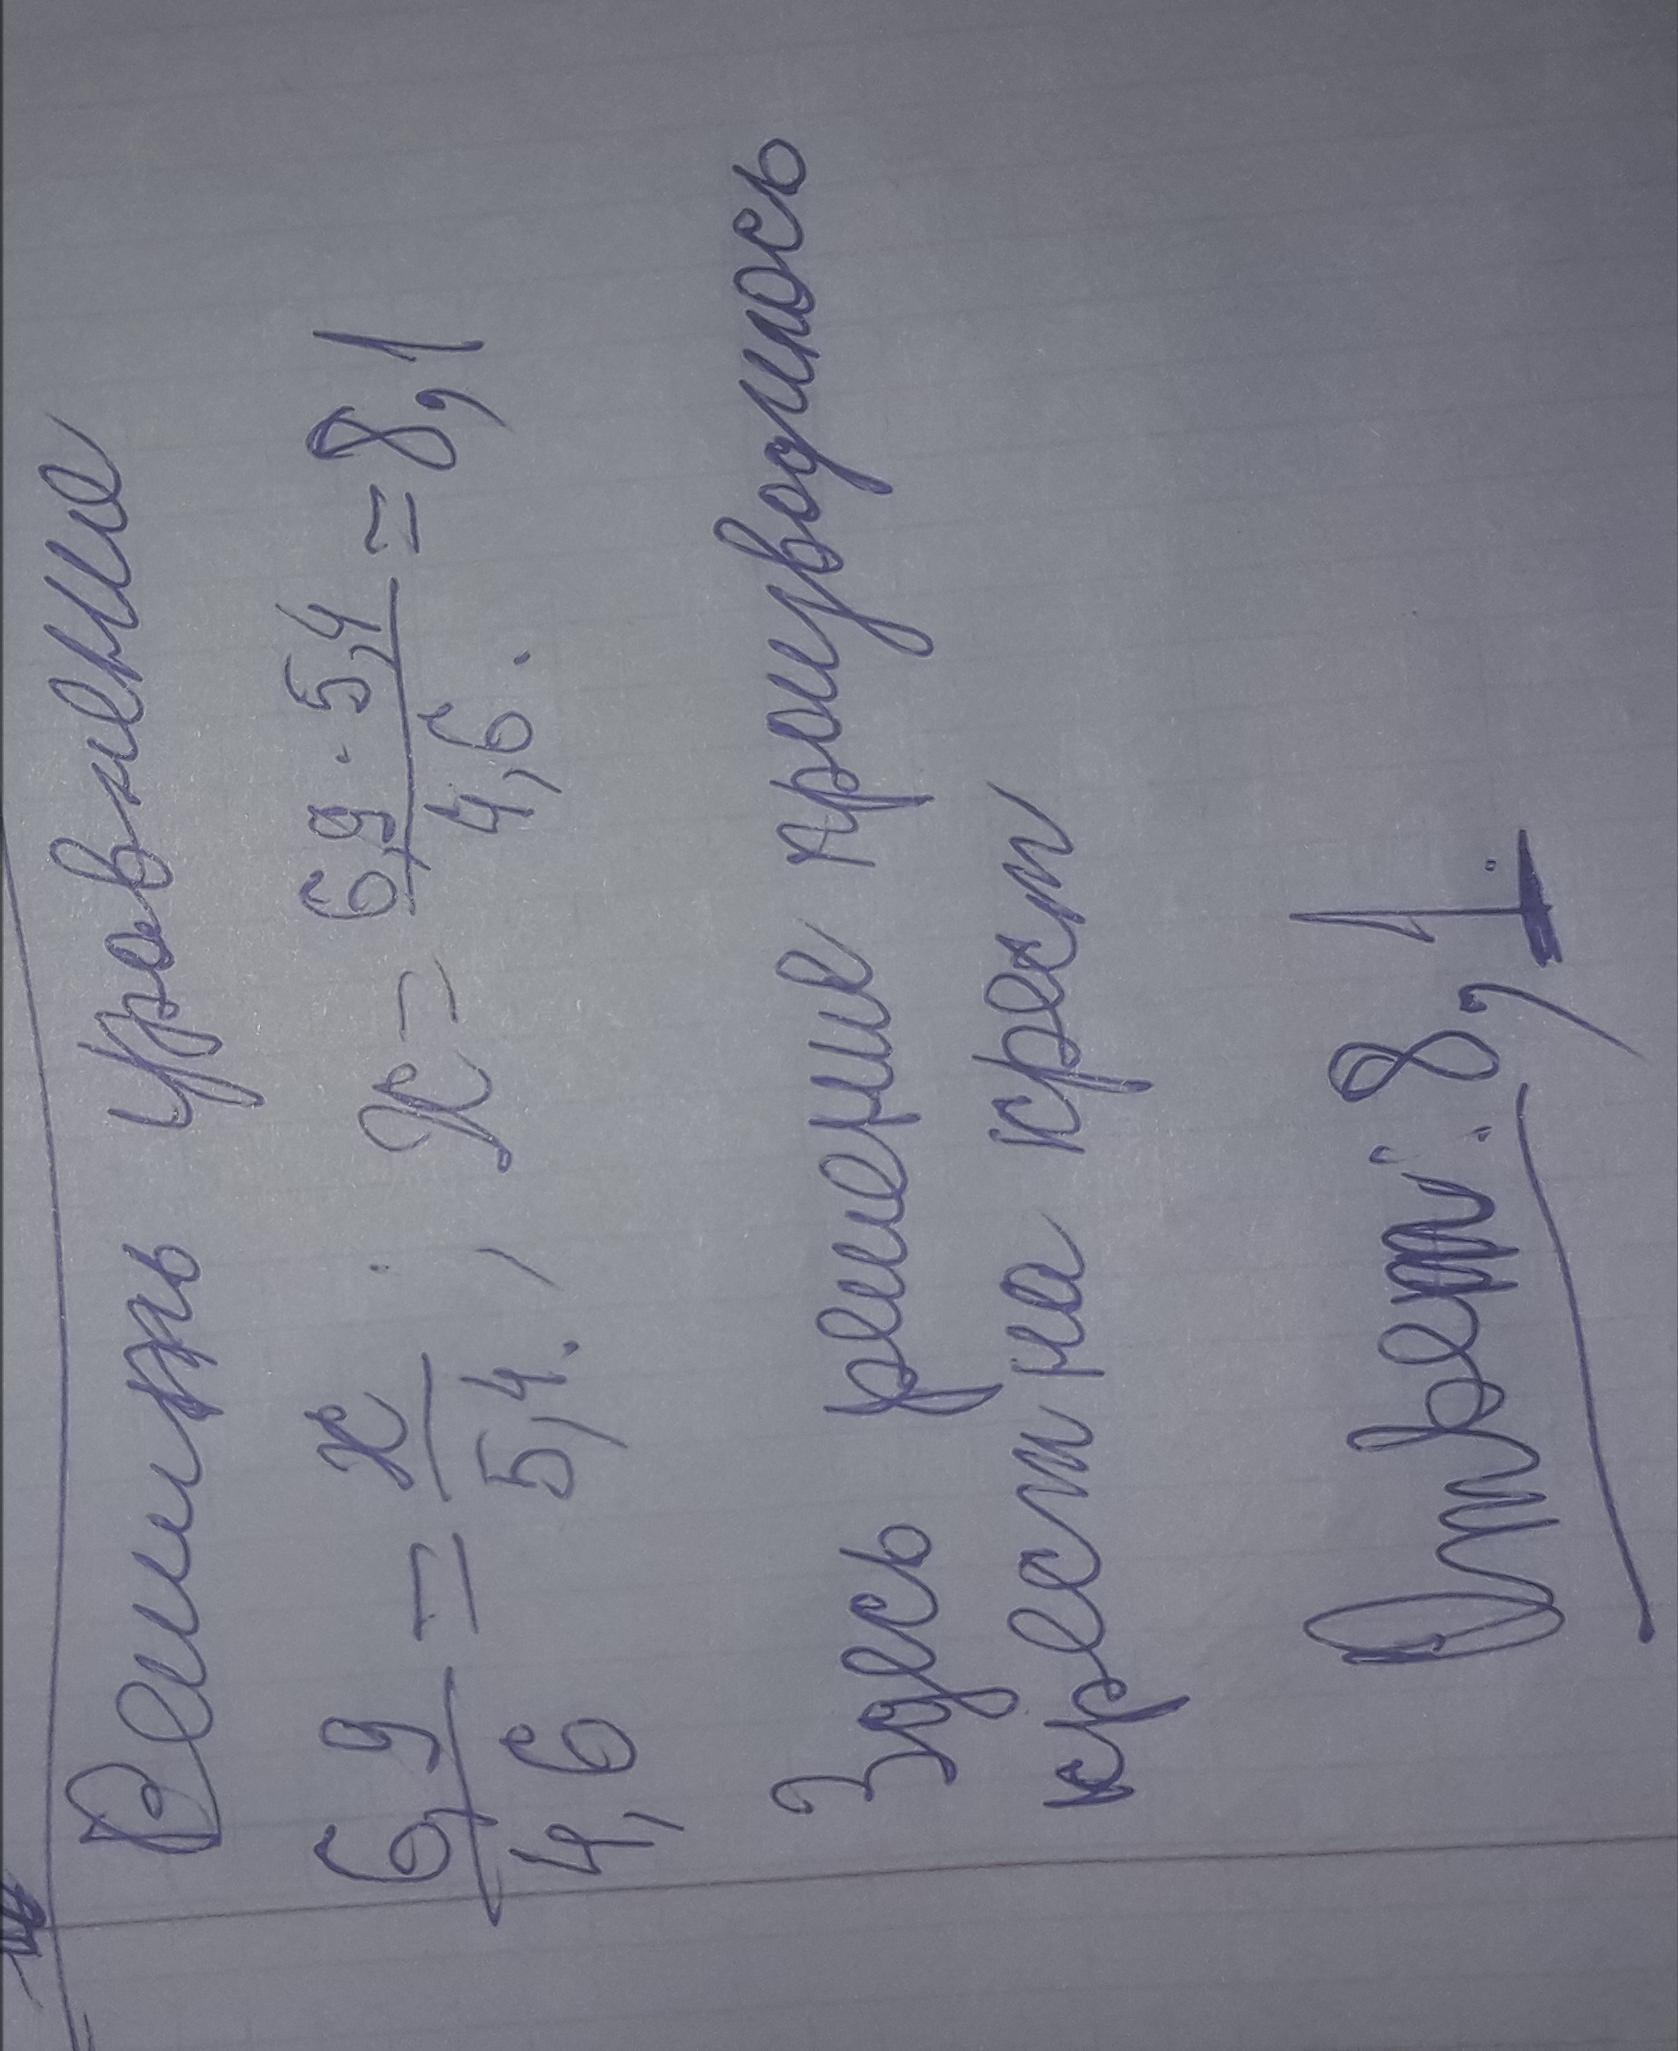 Решить уровнение
6,9/4,6 = x/5,4. , x = 6,9 · 5,4/4,6. = 8,1
Здесь решение производилось
крест на крест
Ответ: 8,1.